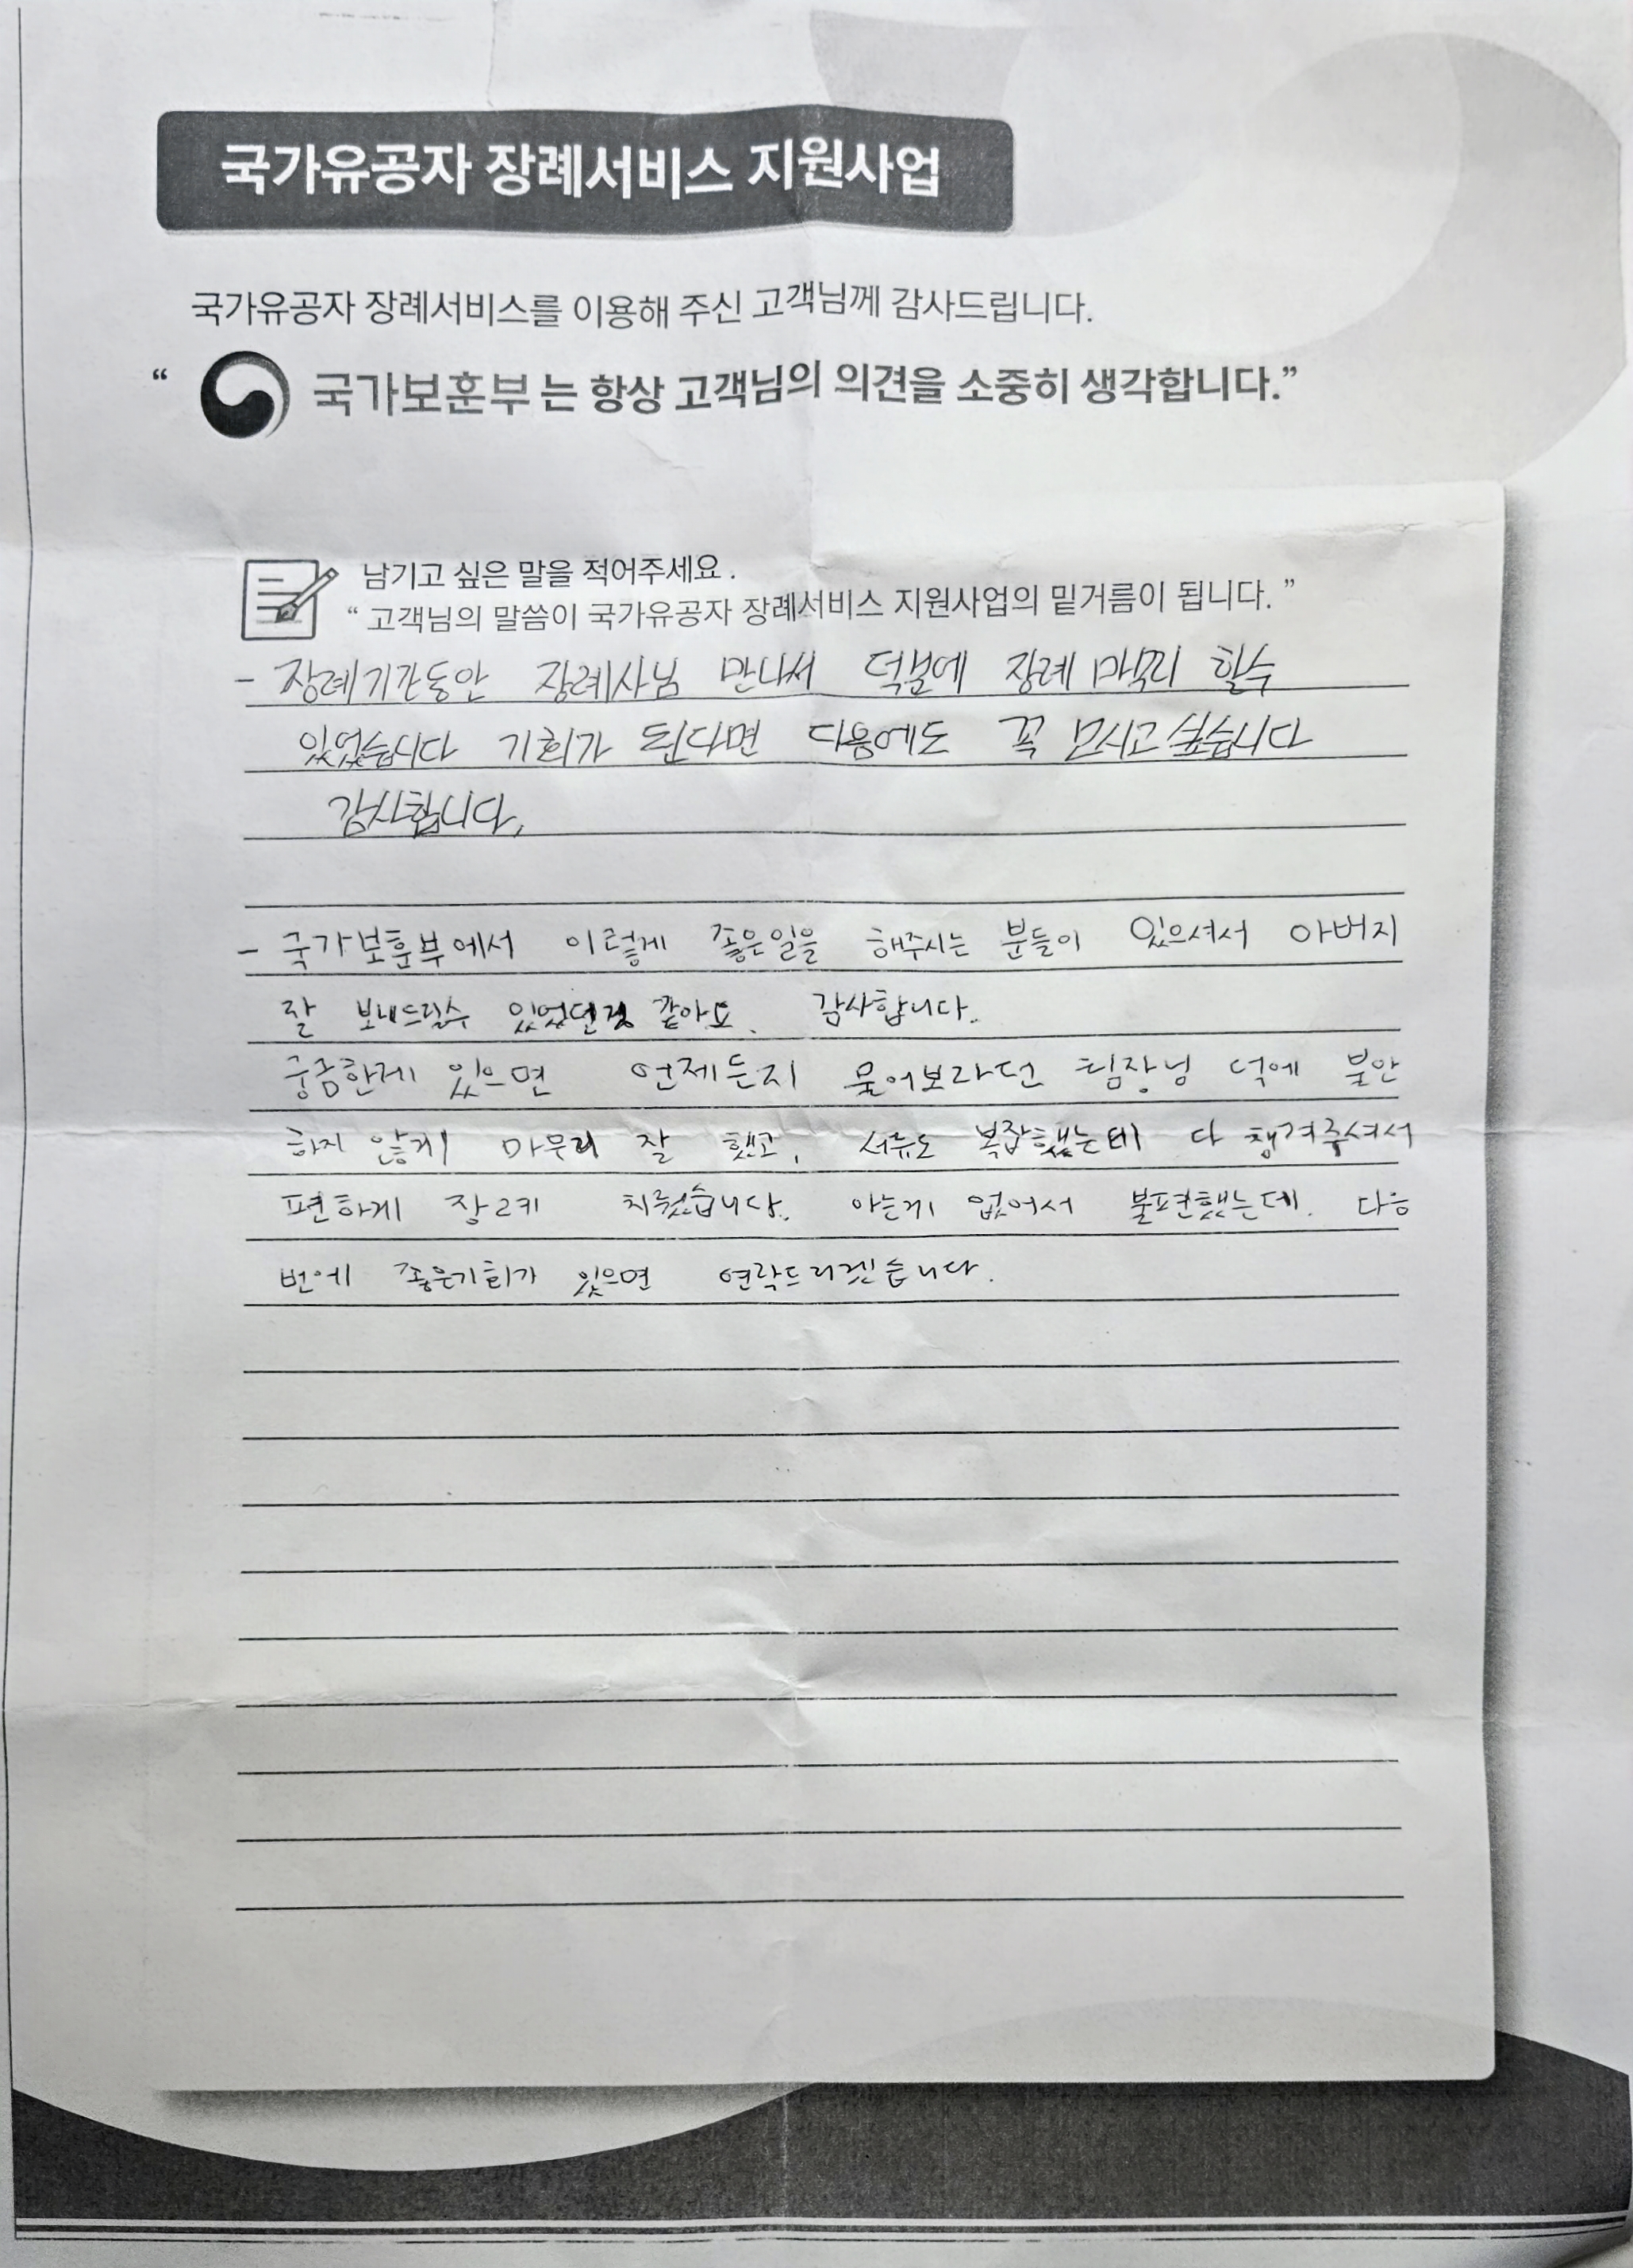 국가유공자 장례서비스 지원사업
국가유공자 장례서비스를 이용해 주신 고객님께 감사드립니다.
“ 국가보훈부 는 항상 고객님의 의견을 소중히 생각합니다.”
남기고 싶은 말을 적어주세요 .
“ 고객님의 말씀이 국가유공자 장례서비스 지원사업의 밑거름이 됩니다. ”
- 장례기간동안 장례사님 만나서 덕분에 장례 할수
있었습니다 기회가 된다면 다음에도 꼭 싶습니다
감사합니다,
- 국가보훈부에서 이렇게 좋은일을 해주시는 분들이 있으셔서 아버지
잘 보내드릴수 있었던것 같아요. 감사합니다.
궁금한게 있으면 언제든지 물어보라던 팀장님 덕에 불안
하지 않게 마무리 잘 했고, 서류도 복잡했는데 다 챙겨주셔서
편하게 장례 치뤘습니다. 아는게 없어서 불편했는데. 다음
번에 좋은기회가 있으면 연락드리겠습니다.